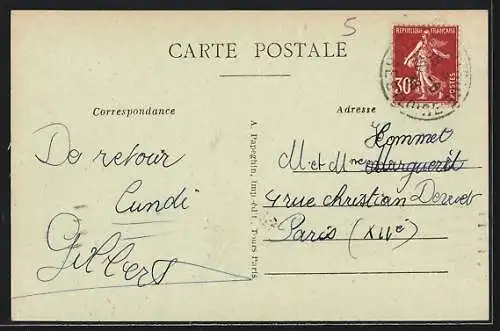 5
CARTE POSTALE
RÉPUBLIQUE FRANÇAISE
30c
POSTES
Correspondance
Adresse
De retour
Lundi
Gilbert
A. Papeghin, Imp.-édit. Tours Paris
Hommet
M et Mme Marguerit
4 rue christian Dewet
Paris (XIIè)